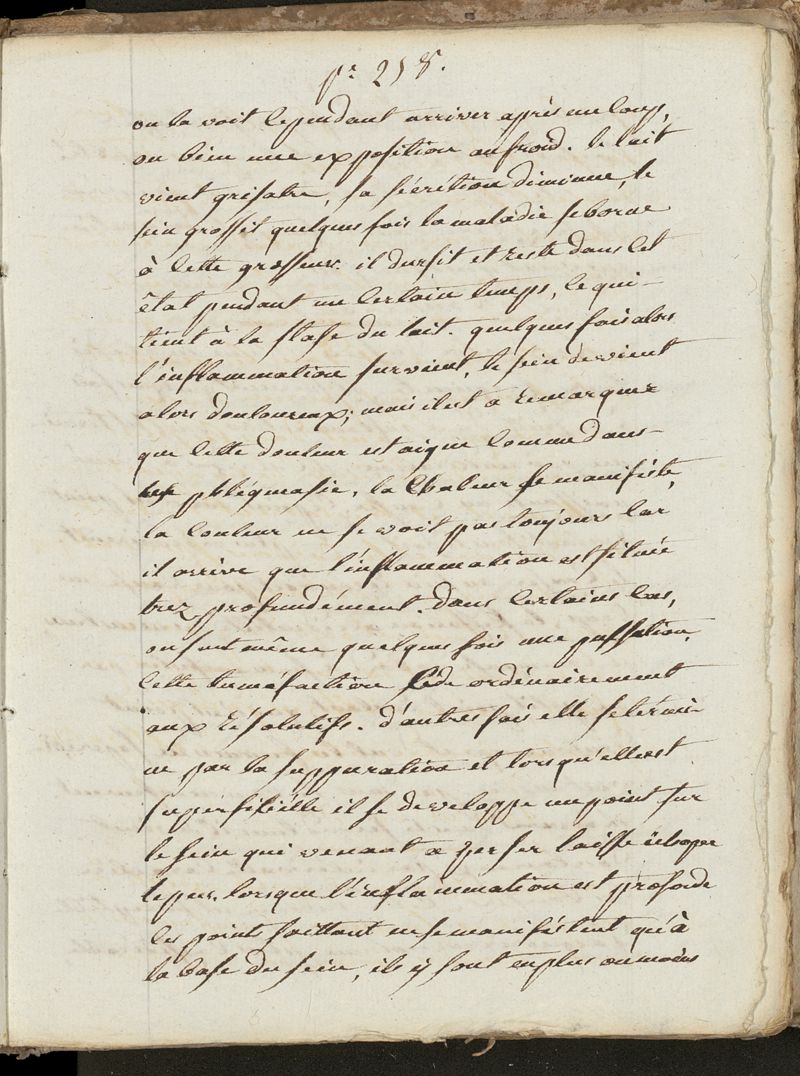 pr 258.
on la voit cependant arriver après un coup,
ou bien une exposition au froid. le lait
vient grisatre, sa sécrétion diminue, le
sein grossit quelques fois la maladie se borne
à cette grosseur. il durfit et reste dans cet
êtat pendant un certain temps, ce qui-
tient à la stase du lait. quelques fois alors
l'inflammation survient, le sein devient
alors douloureux; mais il est a remarquer
que cette douleur est aigue comme dans-
phlégmasie, la Chaleur se manifeste,
la couleur ne se voit pas toujours car
il arrive que l'inflammation est située
trez profondément. dans certains cas,
on sent même quelques fois une pulsation,
cette tuméfaction cède ordinairement
aux résolutifs. d'autres fois elle se termi-
ne par la suppuration et lorsqu'elle est
superficiélle il se developpe un point sur
le sein qui venant a perser laisse échaper
le pus. lorsque l'inflammation est profonde
les points saillant ne se manifestent qu'à
la base du sein, ils y sont en plus ou moins